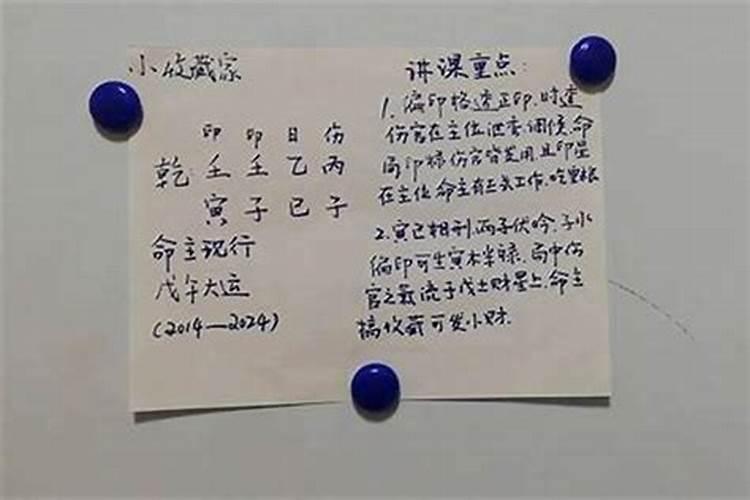 小收藏家
印 印 日 伤
乾 壬 壬 乙 丙
寅 子 巳 子
命主现行
戊午大运
(2014—2024)
讲课重点:
1.偏印格透正印.时透
伤官在主位泄秀调候.命
局印 伤官皆 用.且印星
在主位.命主有正式工作.吃皇粮
2.寅巳相刑.两子伏吟.子水
偏印可生寅木半禄.局中伤
官之 流于戊土财星上.命主
搞收藏可发小财.